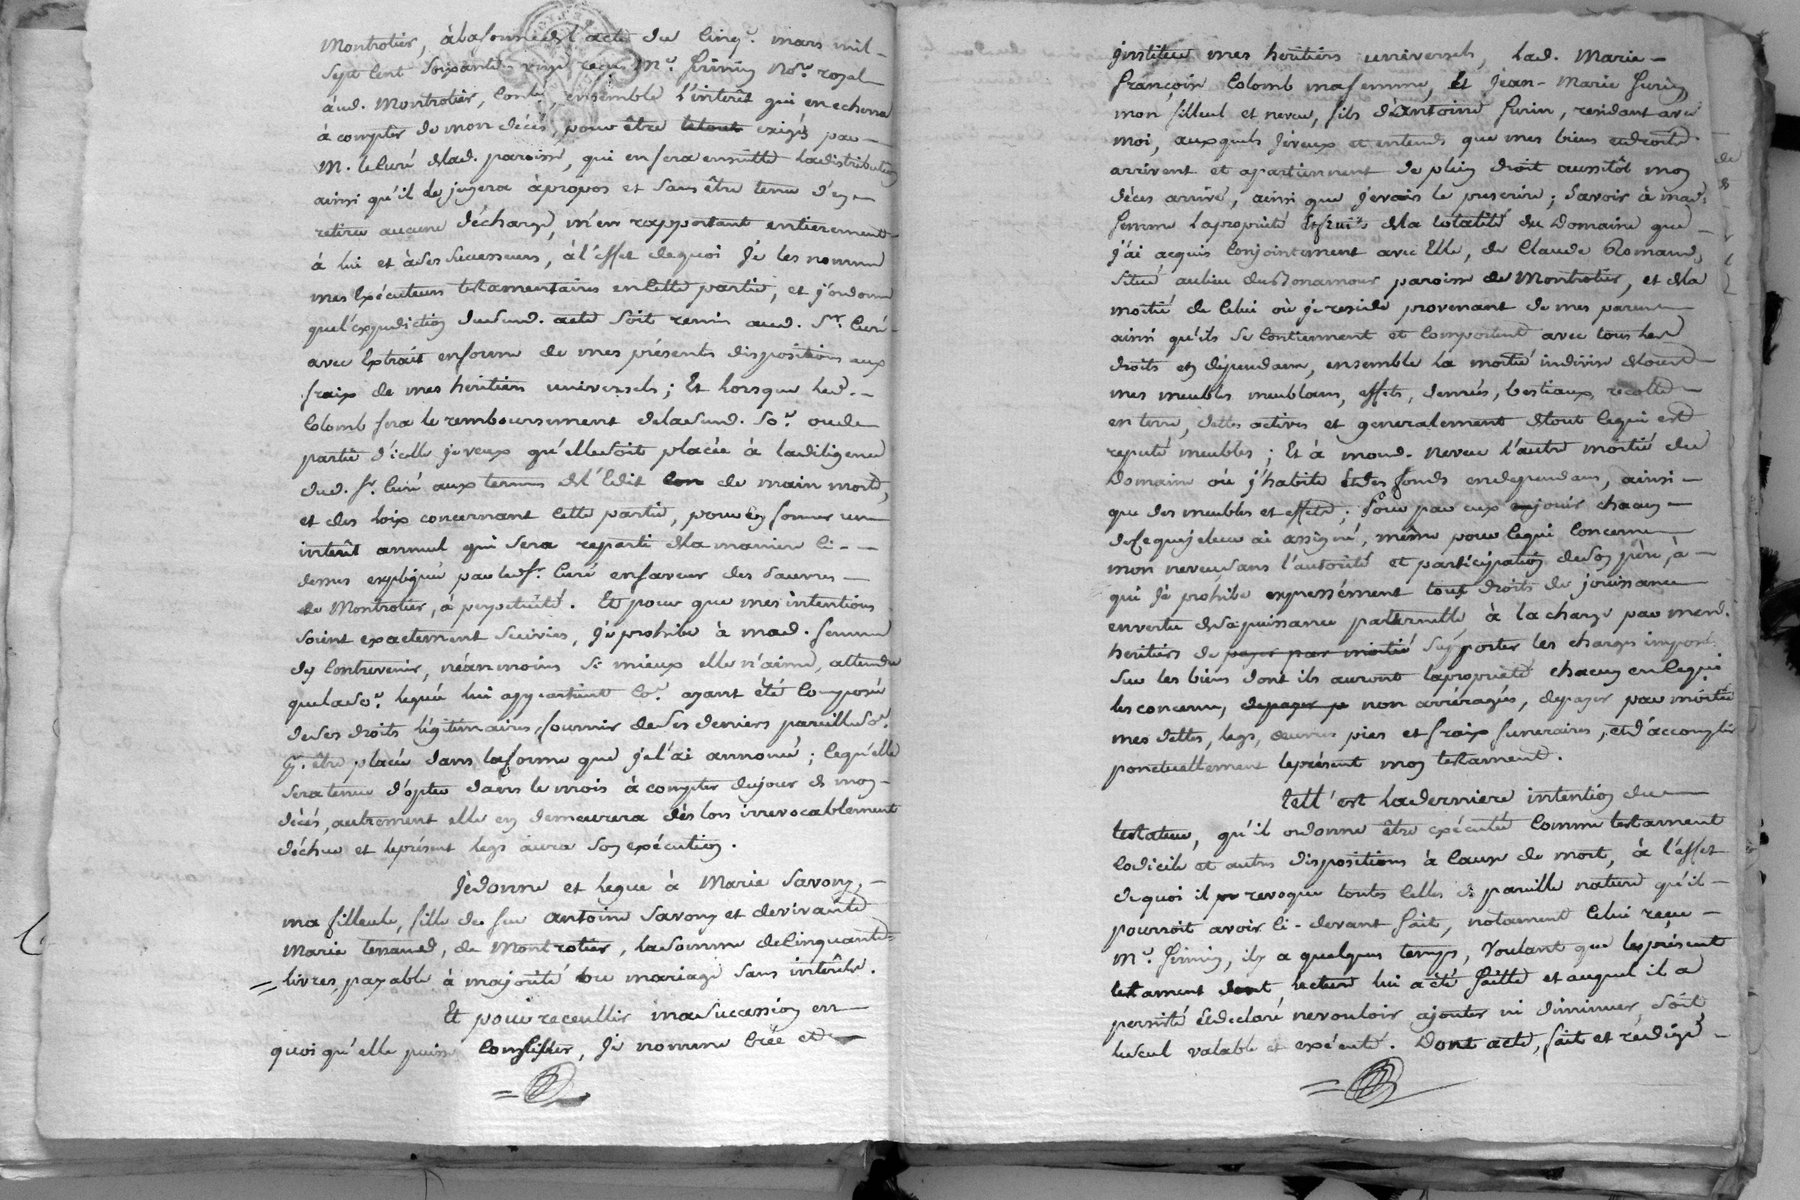 Montrotier, à la forme de l'acte du cinq.e mars mil-
sept cent soixante reçu M.e No.re royal
aud. Montrotier, ensemble l'interêt qui en echerra
à compter de mon décés, pour être exigé par
M. le Curé de lad. paroisse, qui en fera ensuitte la distribution
ainsi qu'il le jugera àpropos et sans être tenu d'en
retirer aucune décharge, m'en rapportant entierement
à lui et à ses successeurs, à l'effet de quoi Je les nomme
mes Exécuteurs testamentaires en cette partie, et j'ordonne
que l'expedition dususd. acte soit remis aud. Sr. Curé
avec Extrait en forme de mes présents dispositions aux
fraix de mes heritiers universels; Et lorsque led.
Colomb fera le remboursement delasusd. So.e ou de
partie d'icelle je veux qu'elle soit placée à la diligence
dud. Sr. Curé aux termes de l'Edit de main morte,
et des loix concernant cette partie, pour en former un
interêt annuel qui sera reparti de la maniere ci-
dessus expliquée par led Sr. Curé en faveur des pauvres
de Montrotier, à perpetuité. Et pour que mes intentions
soient exactement suivies, Je prohibe à mad. femme
d'y contrevenir, néanmoins si mieux elle n'aime, attendu
que la So.e leguée lui appartient co.e ayant été composée
de ses droits légitimaires, fournir de ses deniers pareille So.e
p.r être placée dans la forme que je l'ai annoncé; ce qu'elle
sera tenue d'opter dans le mois à compter du jour de mon
décés, autrement elle en demeurera dès lors irrevocablement
déchue et le présent legs aura son exécution.
Je donne et legue à Marie Savony,
ma filleule, fille de feu Antoine Savony et de vivante
Marie terraud, de Montrotier, la somme de Cinquante
livres, payable à majorité ou mariage sans intérêts.
Et pour receuillir ma succession en
quoi qu'elle puisse consister, Je nomme créé et
institue mes heritiers universels, lad. Marie
françoise Colomb ma femme, Et Jean-Marie
mon filleul et neveu, fils d'Antoine residant avec
moi, auxquels Je veux et entends que mes biens et droits
arrivent et apartiennent de plein droit aussitôt mon
décés arrivé, ainsi que je vais le prescrire; savoir à mad.
femme la propriété de la totalité du Domaine que
j'ai acquis conjointement avec Elle, de Claude Romand,
situé au lieu du Bonamour paroisse de Montrotier, et de la
moitié de celui où je reside provenant de mes parents
ainsi qu'ils se contiennent et comportent avec tous les
droits et dépendances, ensemble la moitié indivise de tous
mes meubles meublans, effets, denrées, bestiaux, recolte
en terre, dettes actives et generalement de tout ce qui est
reputé meubles; Et à mond. neveu l'autre moitié du
Domaine où j'habite et des fonds en dependans, ainsi
que des meubles et effets; Pour par eux jouir chacun
de ce que je leur ai assigné, même pour ce qui concerne
mon neveu sans l'autorité et participation de son père, à
qui Je prohibe expressément tous droits de jouissance
en vertu de sa puissance paternelle, à la charge par mesd.
heritiers de payer par moitié supporter les charges imposé
sur les biens dont ils auront la propriété chacun en ce qui
les concerne, non arréragés, de payer par moitié
mes dettes, legs, œuvres pies et fraix funeraires, et d'accomplir
ponctuellement le présent mon testament.
Tell' est la derniere intention du
testateur, qu'il ordonne être exécutée comme testament
codicile et autres dispositions à cause de mort, à l'effet
de quoi il revoque toutes celles de pareille nature qu'il
pourroit avoir ci-devant fait, notament celui reçu
M.e il y a quelques temps, Voulant que le présent
testament dont lecture lui a été faitte et auquel il a
persisté et declaré ne vouloir ajouter ni diminuer, soit
le seul valable et exécuté. Dont acte, fait et redigé